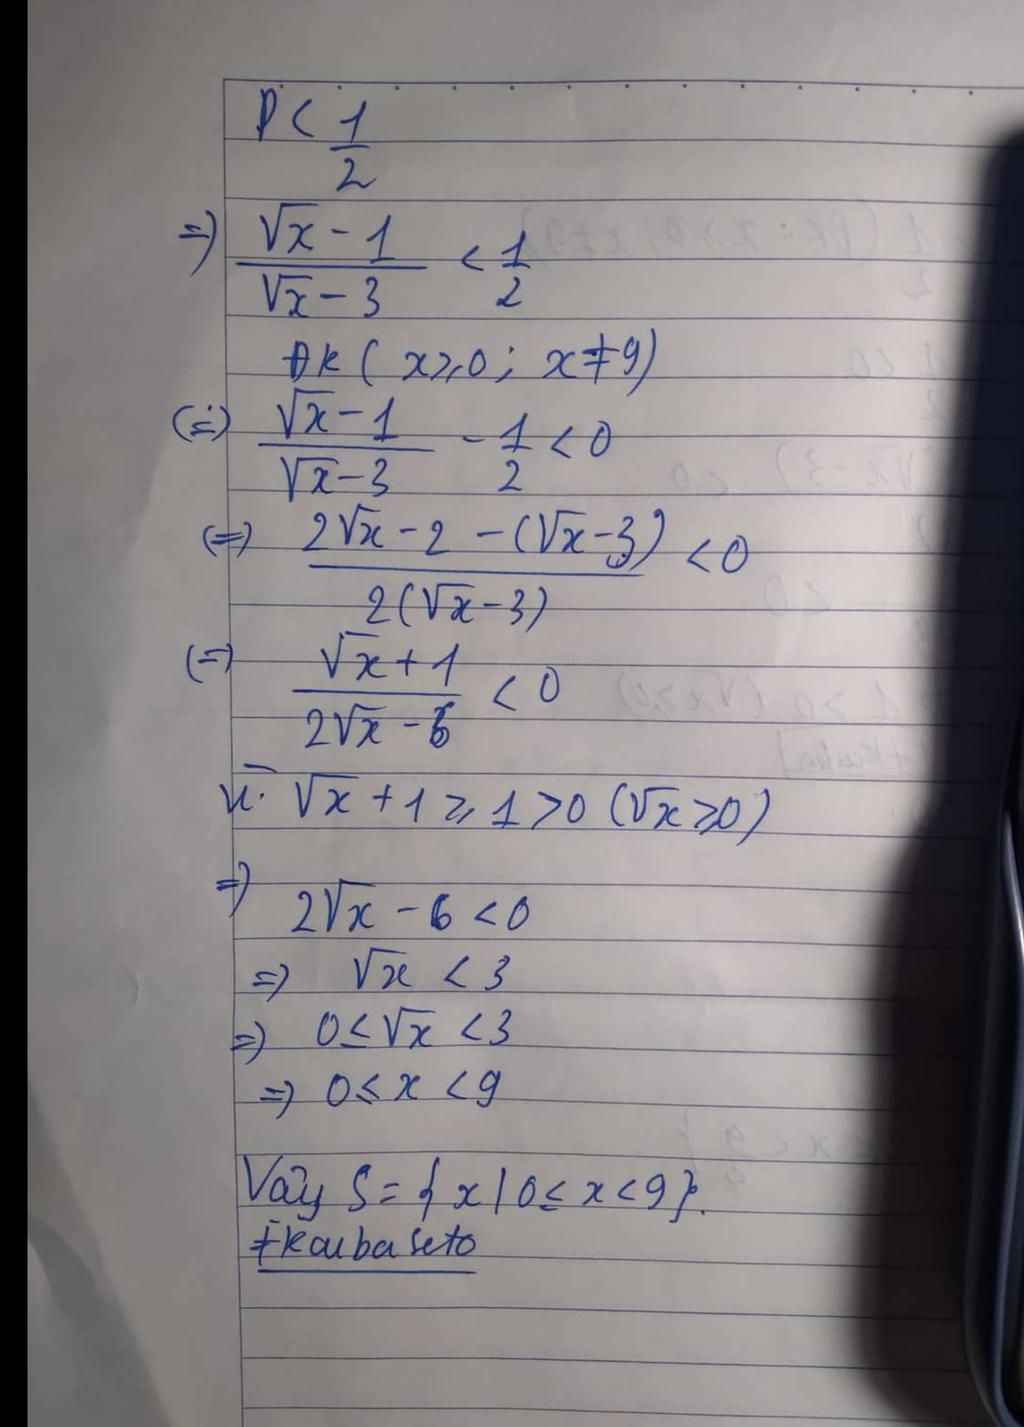 P < 1/2
=) (√x - 1)/(√x - 3) < 1/2
ĐK ( x ≥ 0 ; x ≠ 9)
(=) (√x - 1)/(√x - 3) - 1/2 < 0
(=) (2√x - 2 - (√x - 3))/(2(√x - 3)) < 0
(=) (√x + 1)/(2√x - 6) < 0
Vì √x + 1 ≥ 1 > 0 (√x ≥ 0)
=) 2√x - 6 < 0
=) √x < 3
=) 0 ≤ √x < 3
=) 0 ≤ x < 9
Vậy S = { x | 0 ≤ x < 9 }.